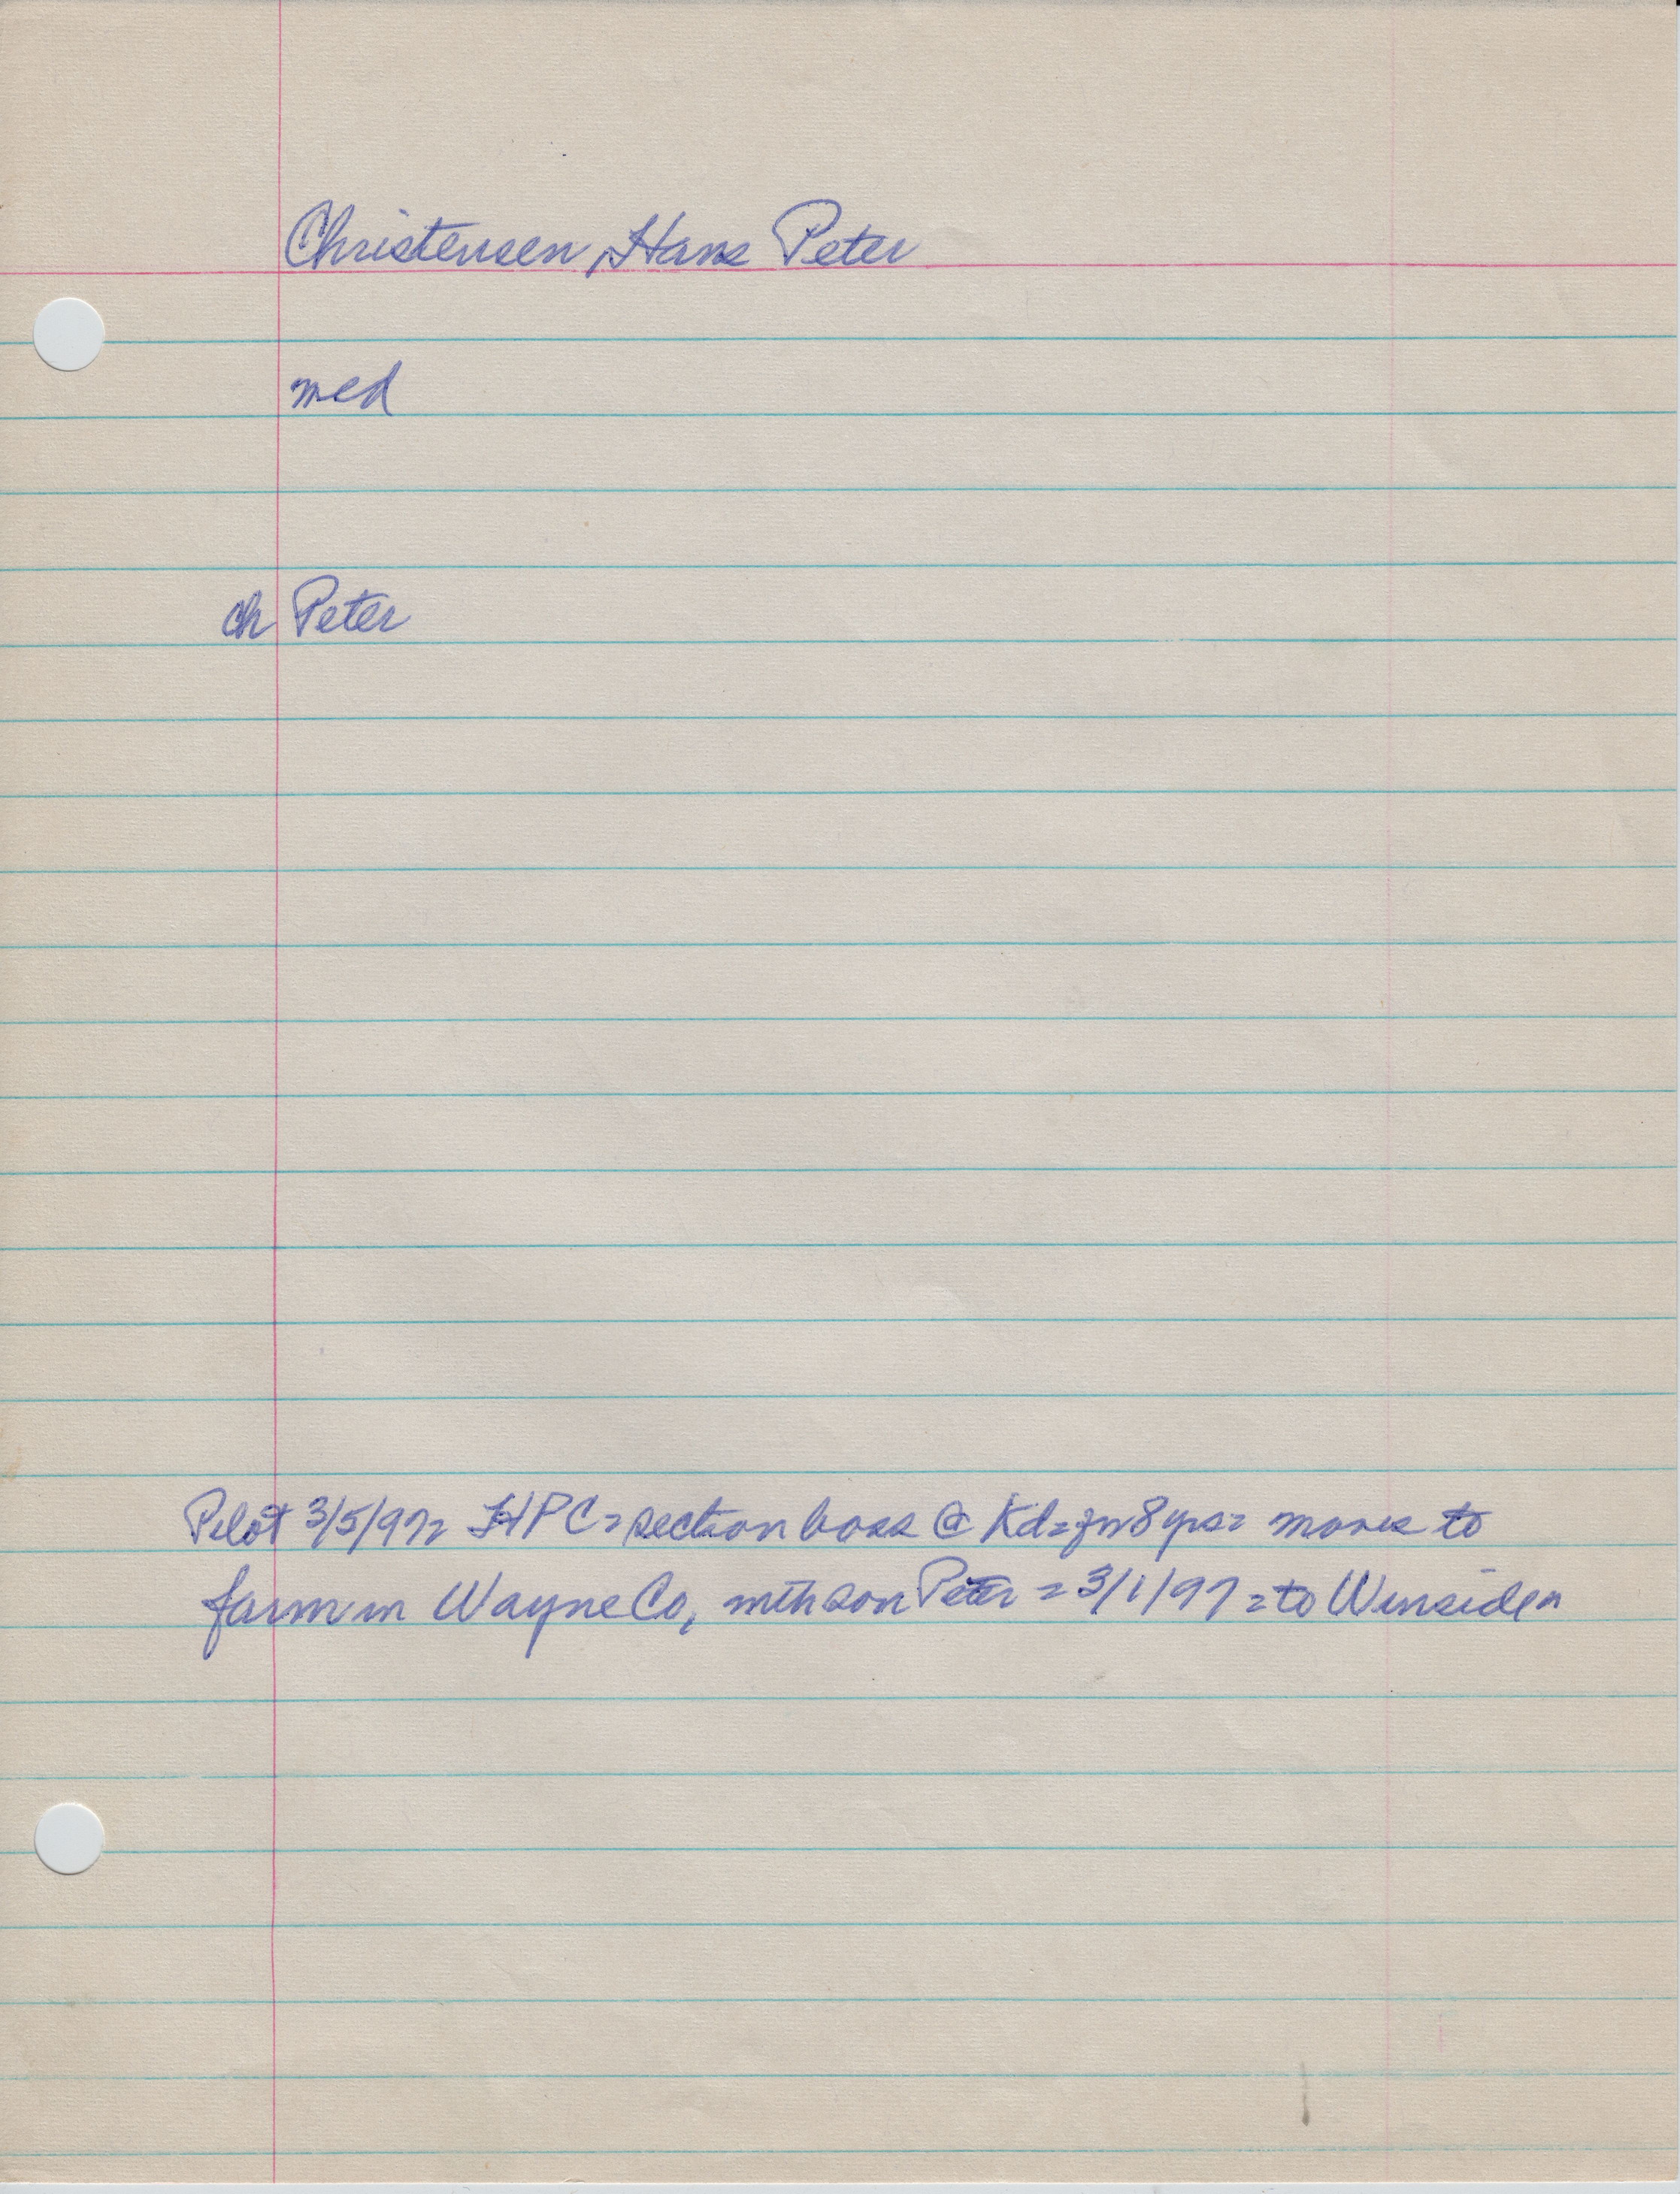 Christensen, Hans Peter
med
ch Peter
Pilot 3/5/97= HPC= section boss @ Kd= for 8 yrs= moves to
farm in Wayne Co, with son Peter = 3/1/97 = to Winside